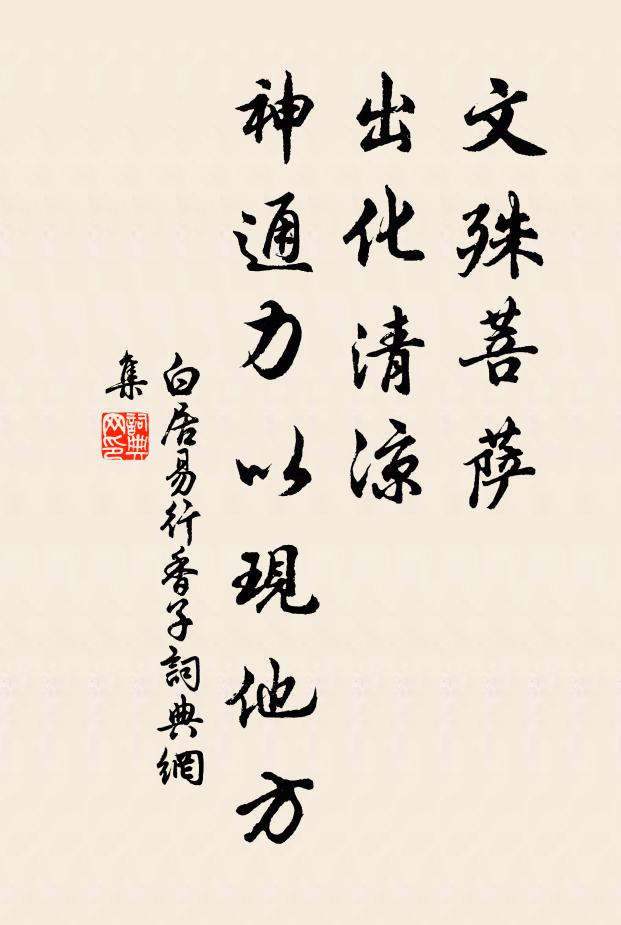 文殊菩萨
出化清凉
神通力以現他方
白居易行香子詞典網
集
詞典
网印